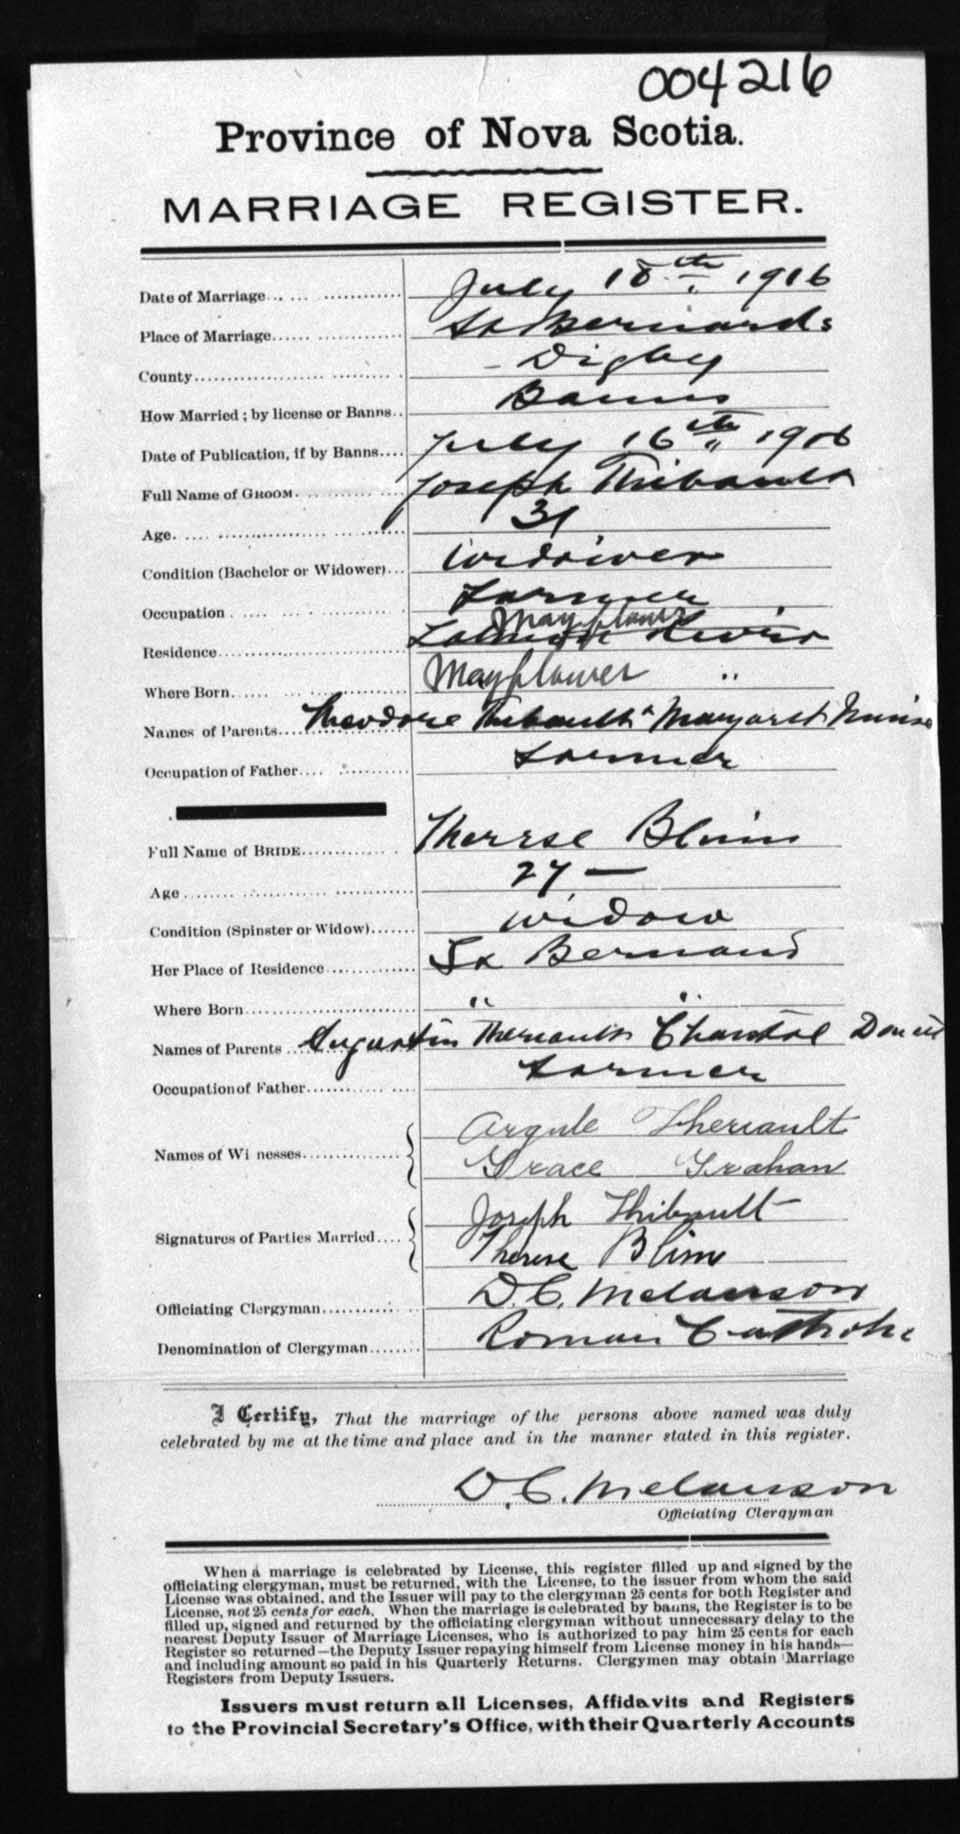 004216
Province of Nova Scotia.
MARRIAGE REGISTER.
Date of Marriage July 18th 1916
Place of Marriage St Bernards
County Digby
How Married; by license or Banns.. Banns
Date of Publication, if by Banns.... July 16th 1916
Full Name of GROOM. Joseph Thibault
Age. 31
Condition (Bachelor or Widower)... Widower
Occupation Farmer
Mayflower
Residence River
Where Born Mayflower "
Names of Parents.... Theodore Thibault & Margaret
Occupation of Father.... Farmer
Full Name of BRIDE Therese Blinn
Age 27 —
Condition (Spinster or Widow) widow
Her Place of Residence St Bernard
Where Born " "
Names of Parents Augustin Theriault Chantal
Occupation of Father Farmer
Names of Wi nesses Theriault
Grace Grahan
Signatures of Parties Married.... Joseph Thibault
Therese Blinn
Officiating Clergyman D. C. Melanson
Denomination of Clergyman Roman Catholic
I Certify, That the marriage of the persons above named was duly
celebrated by me at the time and place and in the manner stated in this register.
D. C. Melanson
Officiating Clergyman
When a marriage is celebrated by License, this register filled up and signed by the
officiating clergyman, must be returned, with the License, to the issuer from whom the said
License was obtained, and the Issuer will pay to the clergyman 25 cents for both Register and
License, not 25 cents for each. When the marriage is celebrated by banns, the Register is to be
filled up, signed and returned by the officiating clergyman without unnecessary delay to the
nearest Deputy Issuer of Marriage Licenses, who is authorized to pay him 25 cents for each
Register so returned—the Deputy Issuer repaying himself from License money in his hands—
and including amount so paid in his Quarterly Returns. Clergymen may obtain Marriage
Registers from Deputy Issuers.
Issuers must return all Licenses, Affidavits and Registers
to the Provincial Secretary's Office, with their Quarterly Accounts